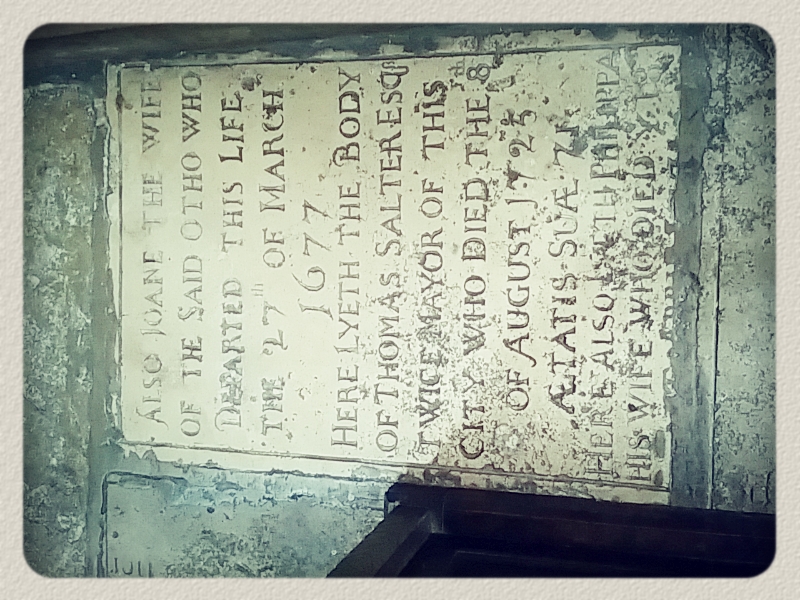 ALSO JOANE THE WIFE
OF THE SAID OTHO WHO
DEPARTED THIS LIFE
THE 27th OF MARCH
1677
HERE LYETH THE BODY
OF THOMAS SALTER ESQr
TWICE MAYOR OF THIS
CITY WHO DIED THE 8th
OF AUGUST 1725
ÆTATIS SUÆ 71
HERE ALSO LYETH PHILIPPA
HIS WIFE WHO DIED